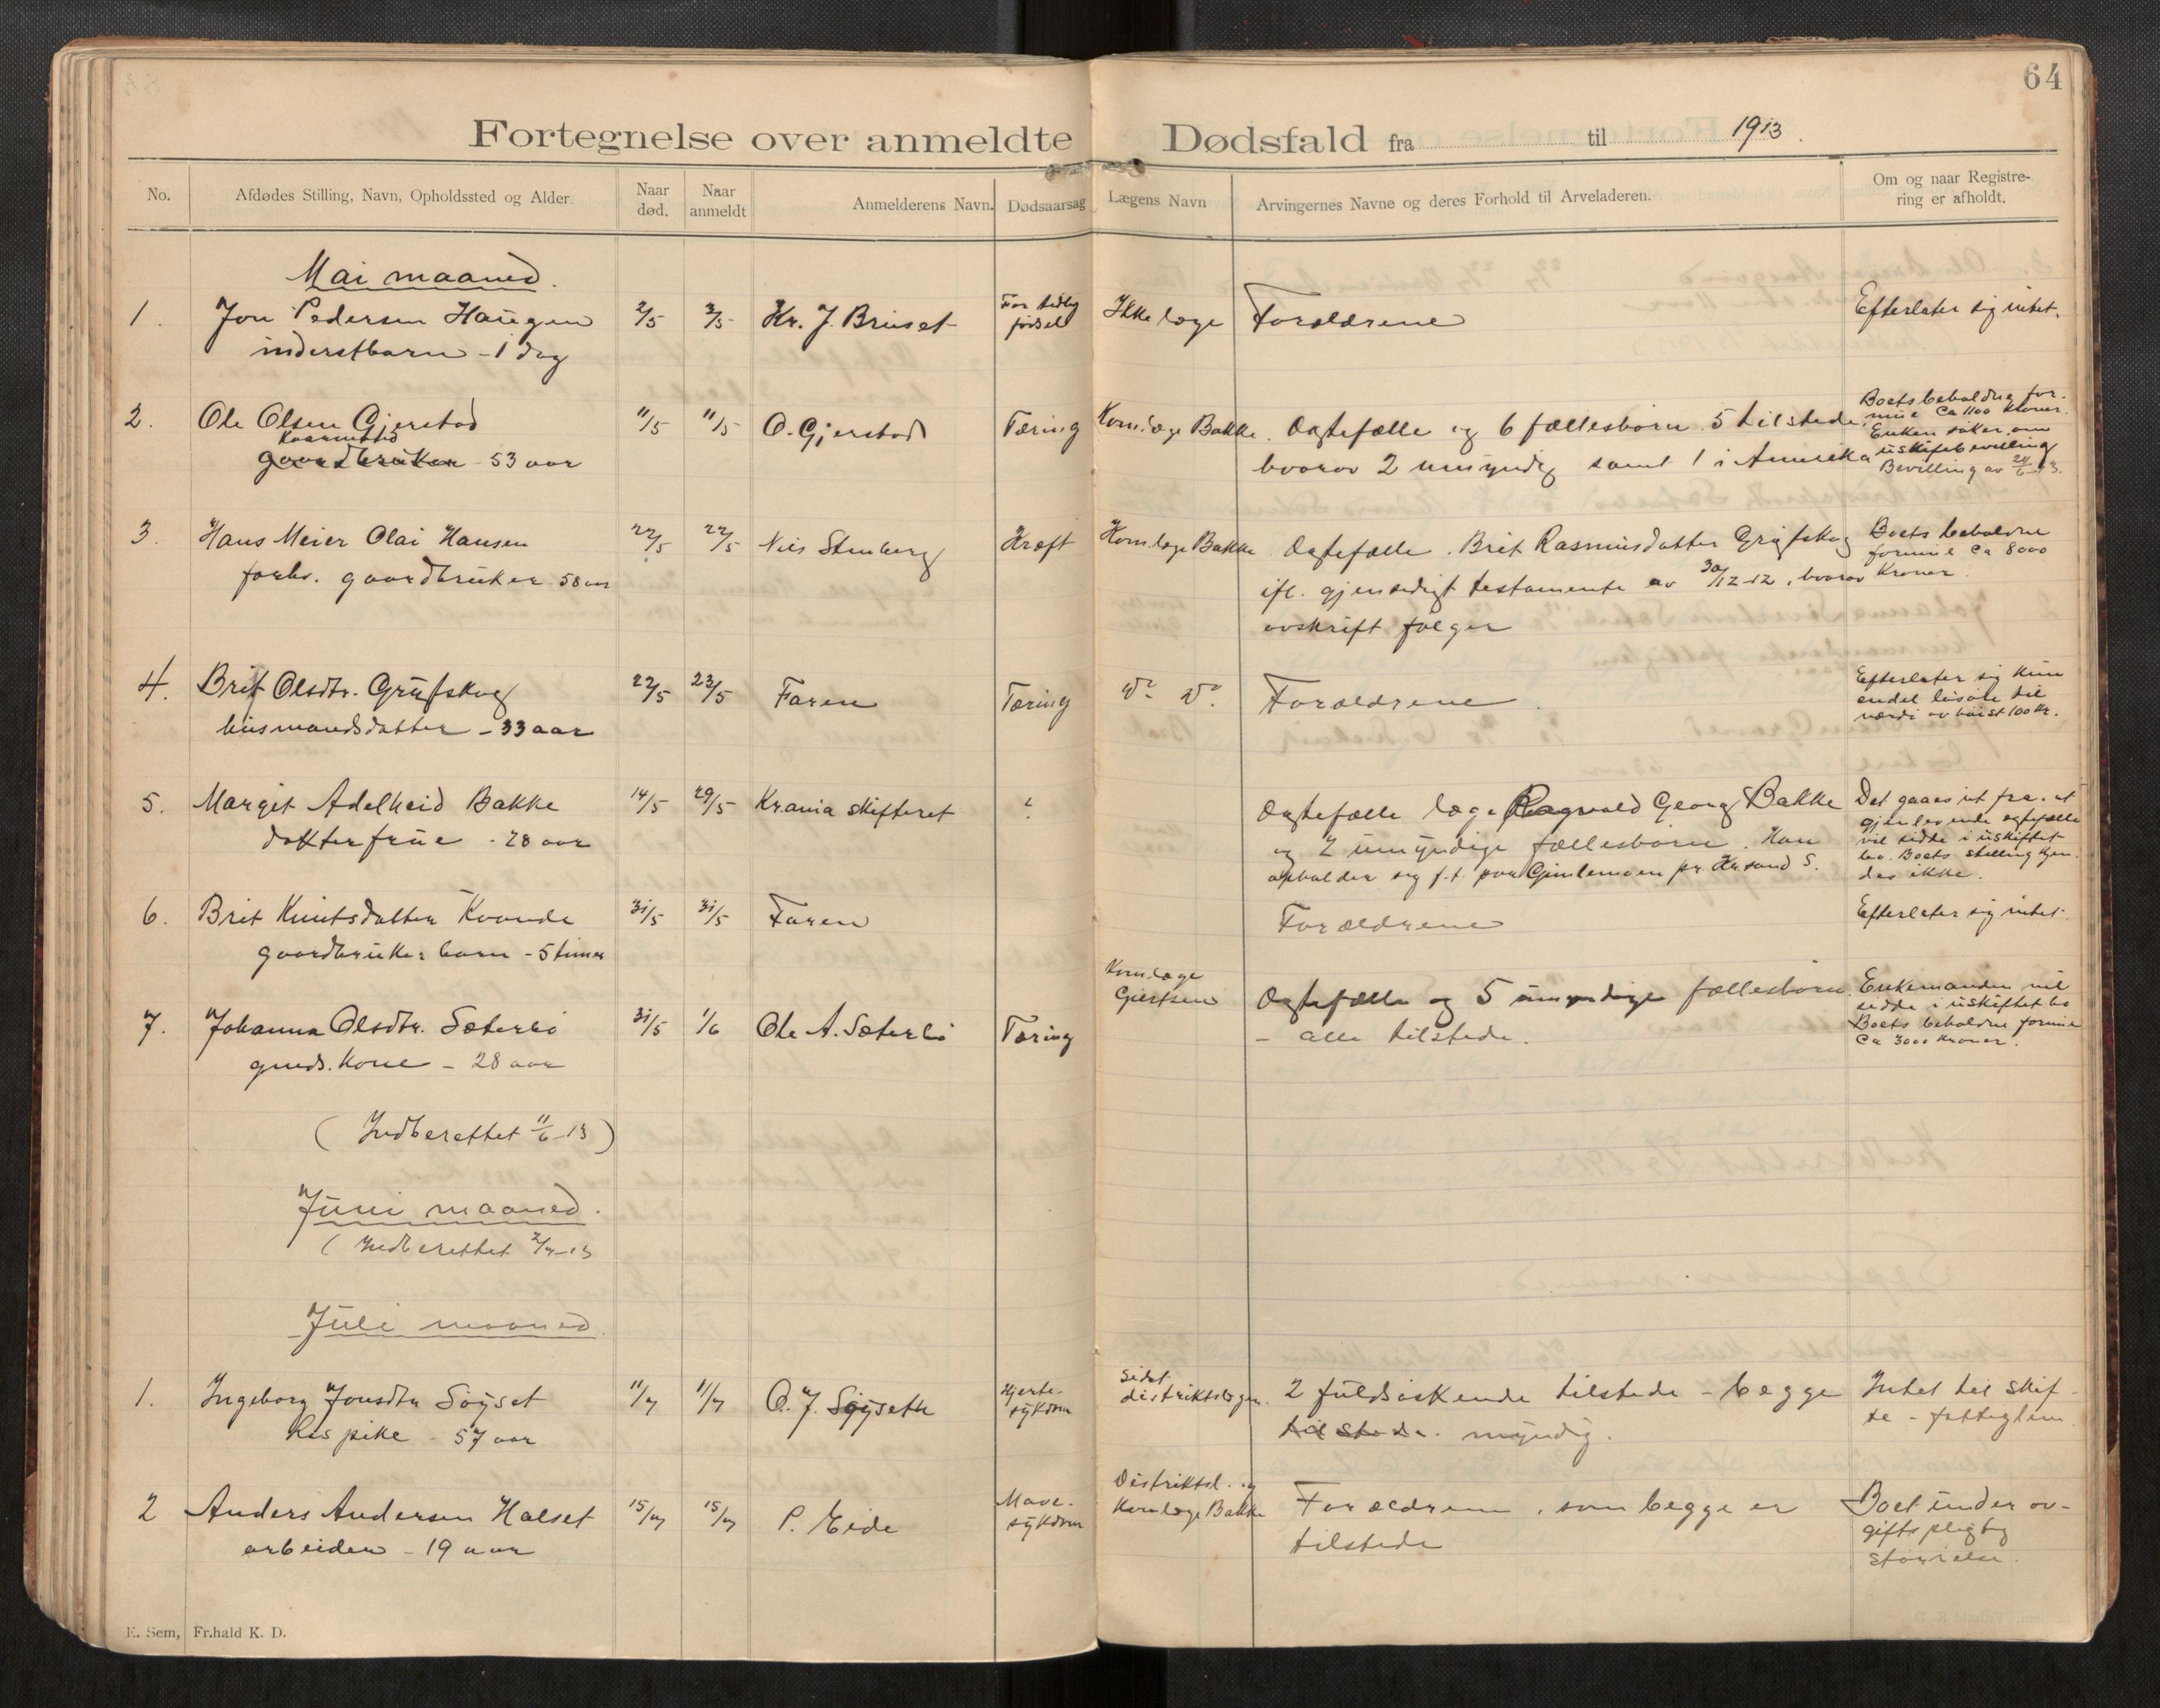 64
Fortegnelse over anmeldte Dødsfald fra til 1913.
No. Afdødes Stilling, Navn, Opholdssted og Alder. Naar død. Naar anmeldt Anmelderens Navn. Dødsaarsag Lægens Navn Arvingernes Navne og deres Forhold til Arveladeren. Om og naar Registrering er afholdt.
Mai maaned.
1. Jon Pedersen Haugen 2/5 3/5 Kr. J. Bruset For tidlig fødsel Ikke læge Forældrene Efterlater sig intet.
inderstbarn - 1 dag
2. Ole Olsen Gjerstad 11/5 11/5 O. Gjerstad Tæring Kom.læge Bakke. Ægtefælle og 6 fællesbørn. 5 tilstede, Boets beholdne for-
mue Ca 1100 Kroner.
kaarmand
gaardbruker - 53 aar hvorav 2 umyndig samt 1 i Amerika Enken søker om
uskiftebevilling
Bevilling av 24/6-13.
3. Hans Meier Olai Hansen 22/5 22/5 Nils Stenberg Kræft Kom.læge Bakke Ægtefælle. Brit Rasmusdatter Grufskag Boets beholdne
formue Ca 8000
Kroner.
forhv. gaardbruker - 58 aar ifl. gjensidigt testamente av 30/12-12, hvorav
avskrift følger
4. Brit Olsdtr. Grufskag 22/5 23/5 Faren Tæring do do. Forældrene. Efterlater sig kun
endel løsøre til
værdi av høist 100 Kr.
husmandsdatter - 33 aar
5. Margit Adelheid Bakke 14/5 29/5 Kr.ania skifteret ? Ægtefælle læge Ragvald Georg Bakke Det gaaes ut fra at
gjenlevende egtefælle
vil sidde i uskiftet
bo. Boets stilling kjen-
des ikke.
dokterfrue - 28 aar og 2 umyndige fællesbørn. Han
opholder sig f.t. paa Gimlemoen pr. Kr.sand S.
6. Brit Knutsdatter Kvande 31/5 31/5 Faren Forældrene Efterlater sig intet.
gaardbrukerbarn - 5 timer
7. Johanna Olsdtr. Sæterbø 31/5 1/6 Ole A. Sæterbø Tæring Kom.læge
Giertsen Ægtefælle og 5 umyndige fællesbørn. Enkemanden vil
sidde i uskiftet bo
Boets beholdne formue
Ca 3000 Kroner.
gmds. kone - 28 aar - alle tilstede.
( Indberettet 11/6-13 )
Juni maaned.
( Indberettet 2/7-13
Juli maaned.
1. Ingeborg Jonsdtr Søyset 11/7 11/7 O. J. Søyseth Hjerte-
sykdom Sidst
distriktslægen. 2 fuldsøskende tilstede - begge Intet til skif-
te - fattiglem
løs pike - 57 aar tilstede. myndig.
2 Anders Andersen Halset 15/7 15/7 P. Eide Mave-
sykdom Distriktsl. og
Kom.læge Bakke Forældrene, som begge er Boet under av-
giftspligtig
størrelse.
arbeider - 19 aar tilstede
E. Sem, Fr.hald K. D.